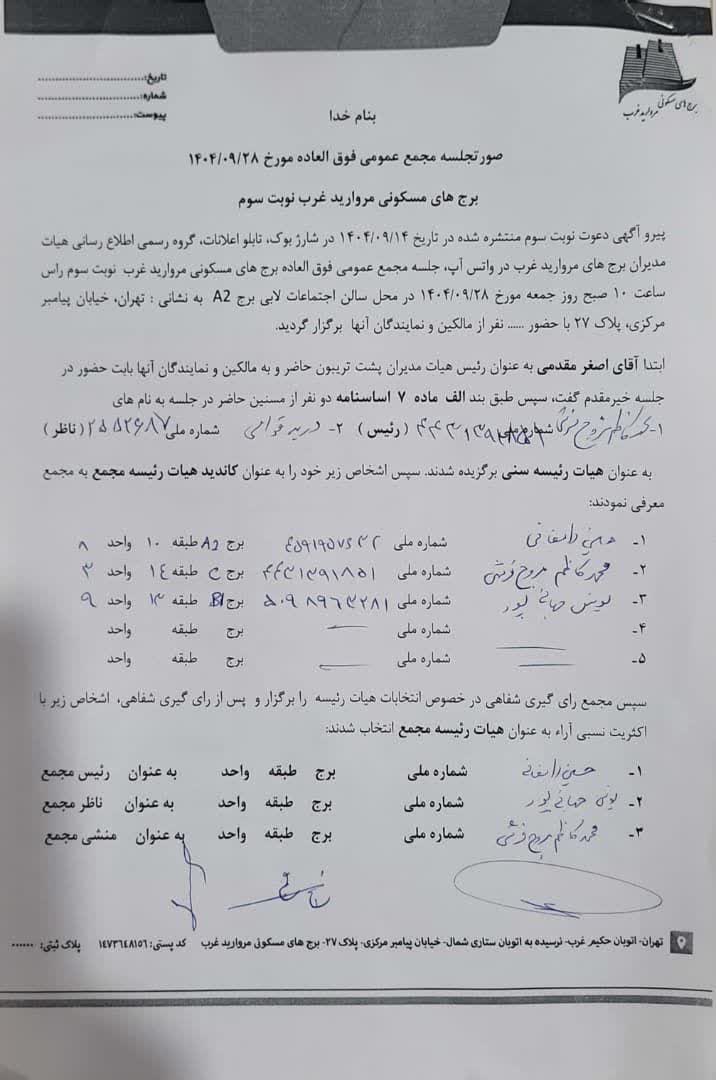 برج های مسکونی مروارید غرب
تاریخ:..............................
شماره:..............................
پیوست:..............................
بنام خدا
صورتجلسه مجمع عمومی فوق العاده مورخ ۱۴۰۴/۰۹/۲۸
برج های مسکونی مروارید غرب نوبت سوم
پیرو آگهی دعوت نوبت سوم منتشره شده در تاریخ ۱۴۰۴/۰۹/۱۴ در شارژ بوک، تابلو اعلانات، گروه رسمی اطلاع رسانی هیات
مدیران برج های مروارید غرب در واتس آپ، جلسه مجمع عمومی فوق العاده برج های مسکونی مروارید غرب نوبت سوم راس
ساعت ۱۰ صبح روز جمعه مورخ ۱۴۰۴/۰۹/۲۸ در محل سالن اجتماعات لابی برج A2 به نشانی : تهران، خیابان پیامبر
مرکزی، پلاک ۲۷ با حضور ...... نفر از مالکین و نمایندگان آنها برگزار گردید.
ابتدا آقای اصغر مقدمی به عنوان رئیس هیات مدیران پشت تریبون حاضر و به مالکین و نمایندگان آنها بابت حضور در
جلسه خیرمقدم گفت، سپس طبق بند الف ماده ۷ اساسنامه دو نفر از مسنین حاضر در جلسه به نام های
۱- محمدکاظم شماره ملی (رئیس) ۲- شماره ملی (ناظر)
به عنوان هیات رئیسه سنی برگزیده شدند. سپس اشخاص زیر خود را به عنوان کاندید هیات رئیسه مجمع به مجمع
معرفی نمودند:
۱- حسین شماره ملی برج A2 طبقه ۱۰ واحد ۸
۲- محمدکاظم شماره ملی ۴۴۳۱۳۹۱۸۵۱ برج C طبقه ۱۴ واحد ۳
۳- یونس جهانی پور شماره ملی ۵۰۹۸۹۶۳۲۸۱ برج B1 طبقه ۱۳ واحد ۹
۴- شماره ملی برج طبقه واحد
۵- شماره ملی برج طبقه واحد
سپس مجمع رای گیری شفاهی در خصوص انتخابات هیات رئیسه را برگزار و پس از رای گیری شفاهی، اشخاص زیر با
اکثریت نسبی آراء به عنوان هیات رئیسه مجمع انتخاب شدند:
۱- حسین شماره ملی برج طبقه واحد به عنوان رئیس مجمع
۲- یونس جهانی پور شماره ملی برج طبقه واحد به عنوان ناظر مجمع
۳- محمدکاظم شماره ملی برج طبقه واحد به عنوان منشی مجمع
تهران- اتوبان حکیم غرب- نرسیده به اتوبان ستاری شمال- خیابان پیامبر مرکزی- پلاک ۲۷- برج های مسکونی مروارید غرب کد پستی: ۱۴۷۳۶۴۸۱۵۶ پلاک ثبتی: ......